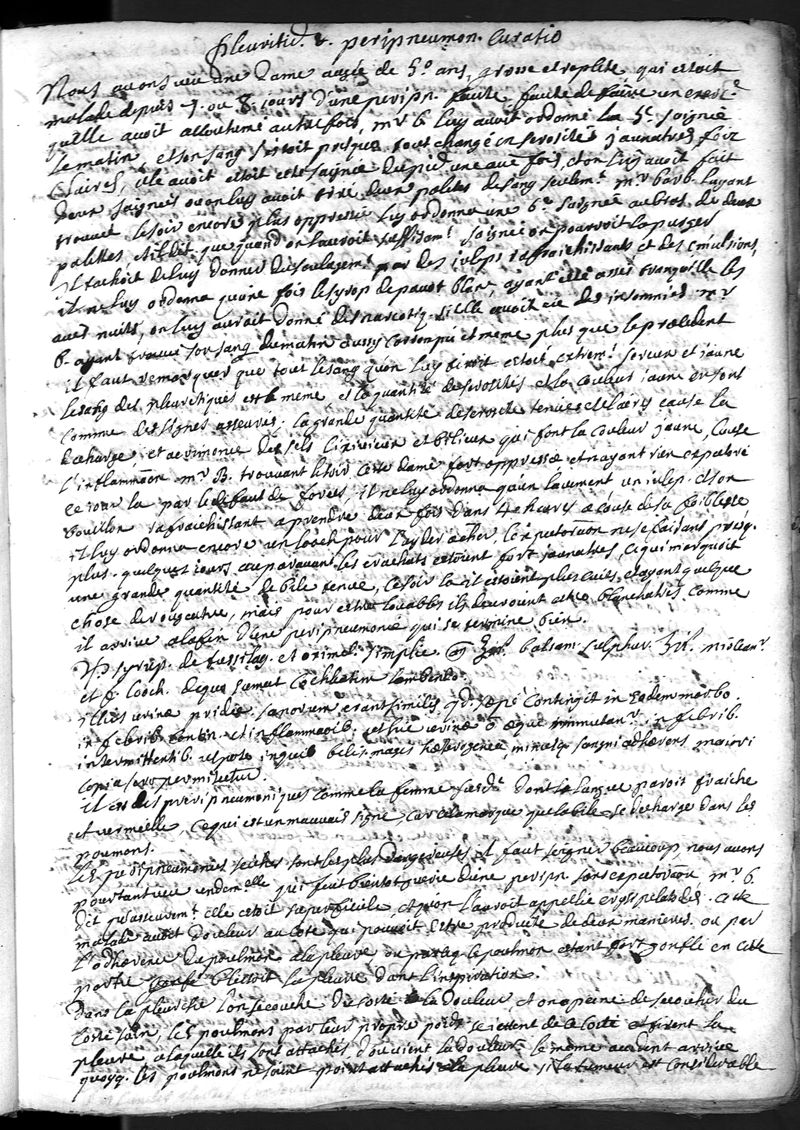 pleuritid. & peripneumon. Curatio
Nous avons veu une Dame aagée de 50 ans, grosse et replete, qui estoit
malade depuis 7. ou 8. jours d'une peripn. faute de faire un exerc.
qu'elle avoit accoutumé autrefois, mr b. luy avoit ordonné la 5e saignée
le matin, et son sang s'estoit presque tout changé en serosités jaunatres, fort
claires, elle avoit esté saignée du pied une fois, et on luy avoit fait
deux saignées ou on luy avoit tiré deux palettes de sang seulemt. mr barb. l'ayant
trouvée le soir encore plus oppressée luy ordonna une 6e saignée au bras de deux
palettes, et il dit que quand on l'auroit suffisamt saignée on pourroit la purger
il tachoit de luy donner du soulagemt par des juleps rafraichissants et des emulsions,
il ne luy ordonna qu'une fois le syrop de pavot blanc, ayant esté assés tranquille les
nuits, on luy auroit donné des narcotiq. si elle avoit eu des insomnies. mr
b. ayant trouvé son sang du matin aussy corrompu et meme plus que le precedent
il faut remarquer que tout le sang qu'on luy tiroit estoit extremt sereux et jaune
le sang des pleuretiques est le meme et la quantité de serosités et la couleur jaune en sont
comme des signes asseurés, la grande quantité de serosité tenue et claire cause la
decharge, et acrimonie des sels lixivieux et bilieux qui font la couleur jaune, cause
l'inflammaon. mr B. trouvant le soir cette dame fort oppressée et n'ayant rien expectoré
ce jour la par le defaut de forces, il ne luy ordonna qu'un lavement un julep, et son
bouillon rafraichissant a prendre deux fois dans 4 heures a cause de sa foiblesse
il luy ordonna encore un looch pour luy lacher, l'expectoraon ne se faisans presq.
plus. quelques jours auparavant les crachats estoient fort jaunatres, ce qui marquoit
une grande quantité de bile tenue, ce soir la ils estoient plus cuits, et ayant quelque
chose de rougeatre, mais pour estre louables ils devroint estre blanchatres comme
il arrive a la fin d'une peripneumonie qui se termine bien.
syrup. de tussilag. et oximel. simplic. balsam. sulphur. misceant.
et f. looch. de quo sumat cochleatim lambendo.
illius urinæ pridie sanorum erant similes qd. sæpe contingit in eodem morbo.
in febrib. contin. et inflammaoib. urinæ immutant. in febrib.
intermittentib. bilis magis heterogenea, minusq sangni adhærens, majori
copia sero permiscetur.
il y a des peripneumoniques comme la femme susd. dont la langue paroit fraiche
et vermeille, ce qui est un mauvais signe, car cela marque que la bile se decharge dans les
poumons.
les peripneumonies seiches sont les plus dangereuses et faut seigner beaucoup, nous avons
pourtant veu une demelle qui fut bientot guerie d'une peripn. sans expectoraon mr b.
dit qu'asseuremt elle estoit superficiele, et qu'on l'auroit appellée erysipelatodes. cette
malade avoit douleur au coté qui pouvoit estre produite de deux manieres. ou par
l'adherence du poulmon a la pleure ou parceq. le poulmon estant fort gonflé en cette
partie blessoit la pleure dans l'inspiration.
dans la pleuresie l'on se couche du coste de la douleur et on a peine de se coucher du
costé sain, les poulmons par leur propre poids se jettent de ce costé et tirent la
pleure, a laquelle ils sont attachés, d'ou vient la douleur, le meme accident arrive
quoyq. les poulmons ne soient point attachés a la pleure si la tumeur est considerable